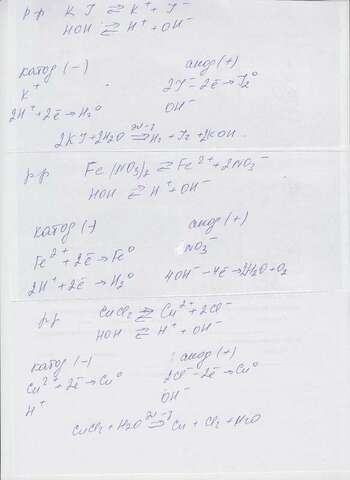 р-р KJ ⇄ K⁺ + J⁻
HOH ⇄ H⁺ + OH⁻
катод (-) анод (+)
K⁺ 2J⁻ - 2ē → J₂⁰
2H⁺ + 2ē → H₂⁰ OH⁻
2KJ + 2H₂O эл-з ⇒ H₂ + J₂ + 2KOH
р-р Fe(NO₃)₂ ⇄ Fe²⁺ + 2NO₃⁻
HOH ⇄ H⁺ + OH⁻
катод (-) анод (+)
Fe²⁺ + 2ē → Fe⁰ NO₃⁻
2H⁺ + 2ē → H₂⁰ 4OH⁻ - 4ē → 2H₂O + O₂
р-р CuCl₂ ⇄ Cu²⁺ + 2Cl⁻
HOH ⇄ H⁺ + OH⁻
катод (-) анод (+)
Cu²⁺ + 2ē → Cu⁰ 2Cl⁻ - 2ē → Cu⁰
H⁺ OH⁻
CuCl₂ + H₂O эл-з ⇒ Cu + Cl₂ + H₂O